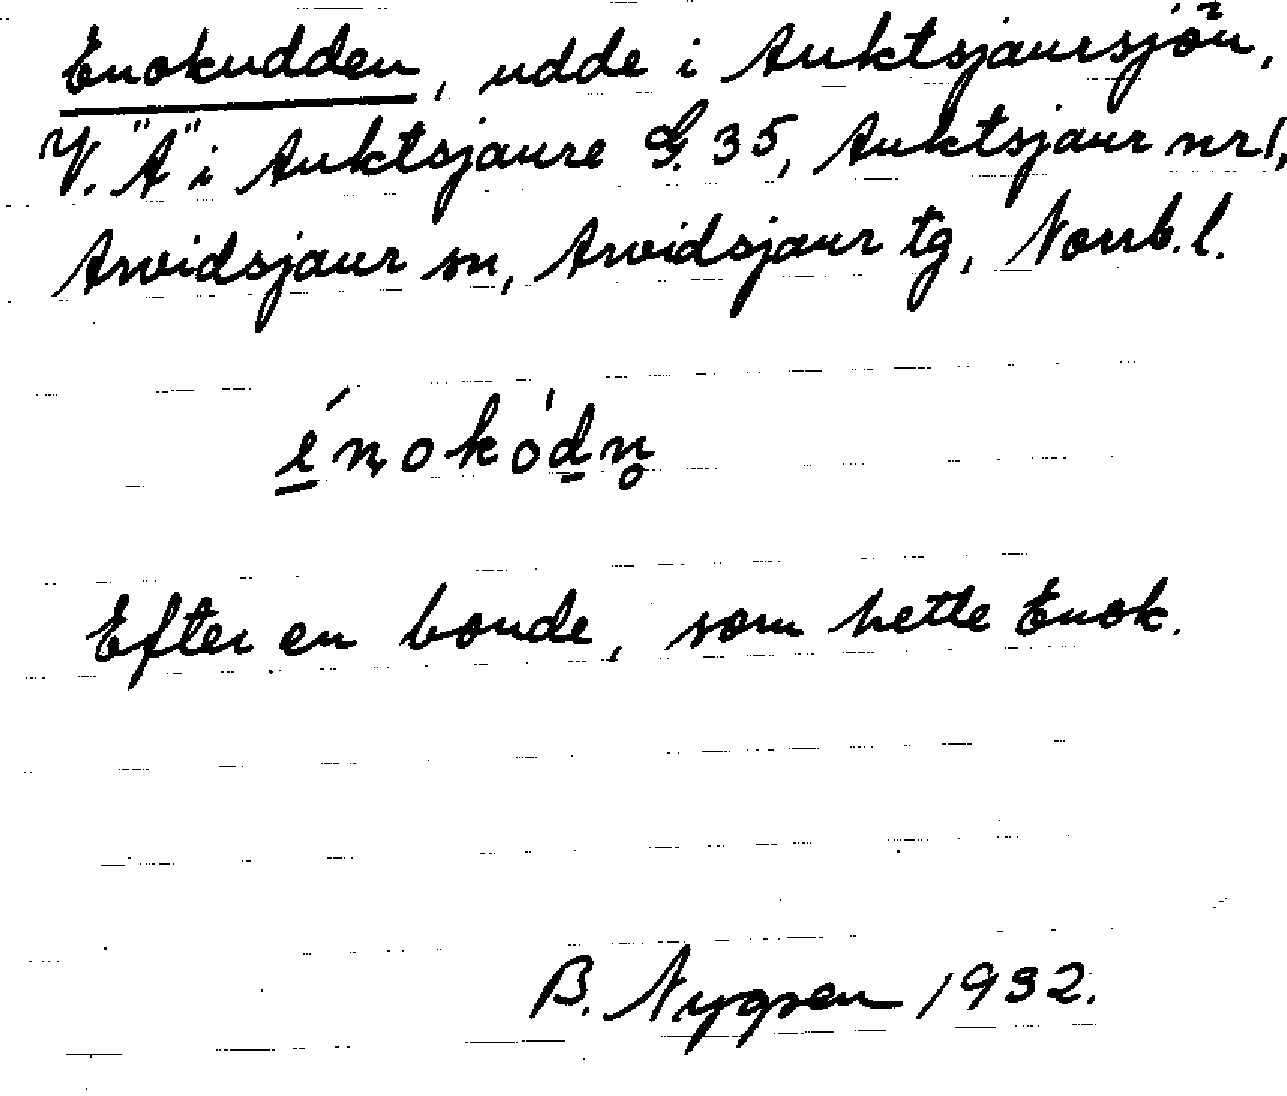 Enokudden, udde i Auktsjaursjön,
V. "A" i Auktsjaure G. 35, Auktsjaur nr 1,
Arvidsjaur sn, Arvidsjaur tg, Norrb. l.
énokòdn̥
Efter en bonde, som hette Enok.
B. Nygren 1932.